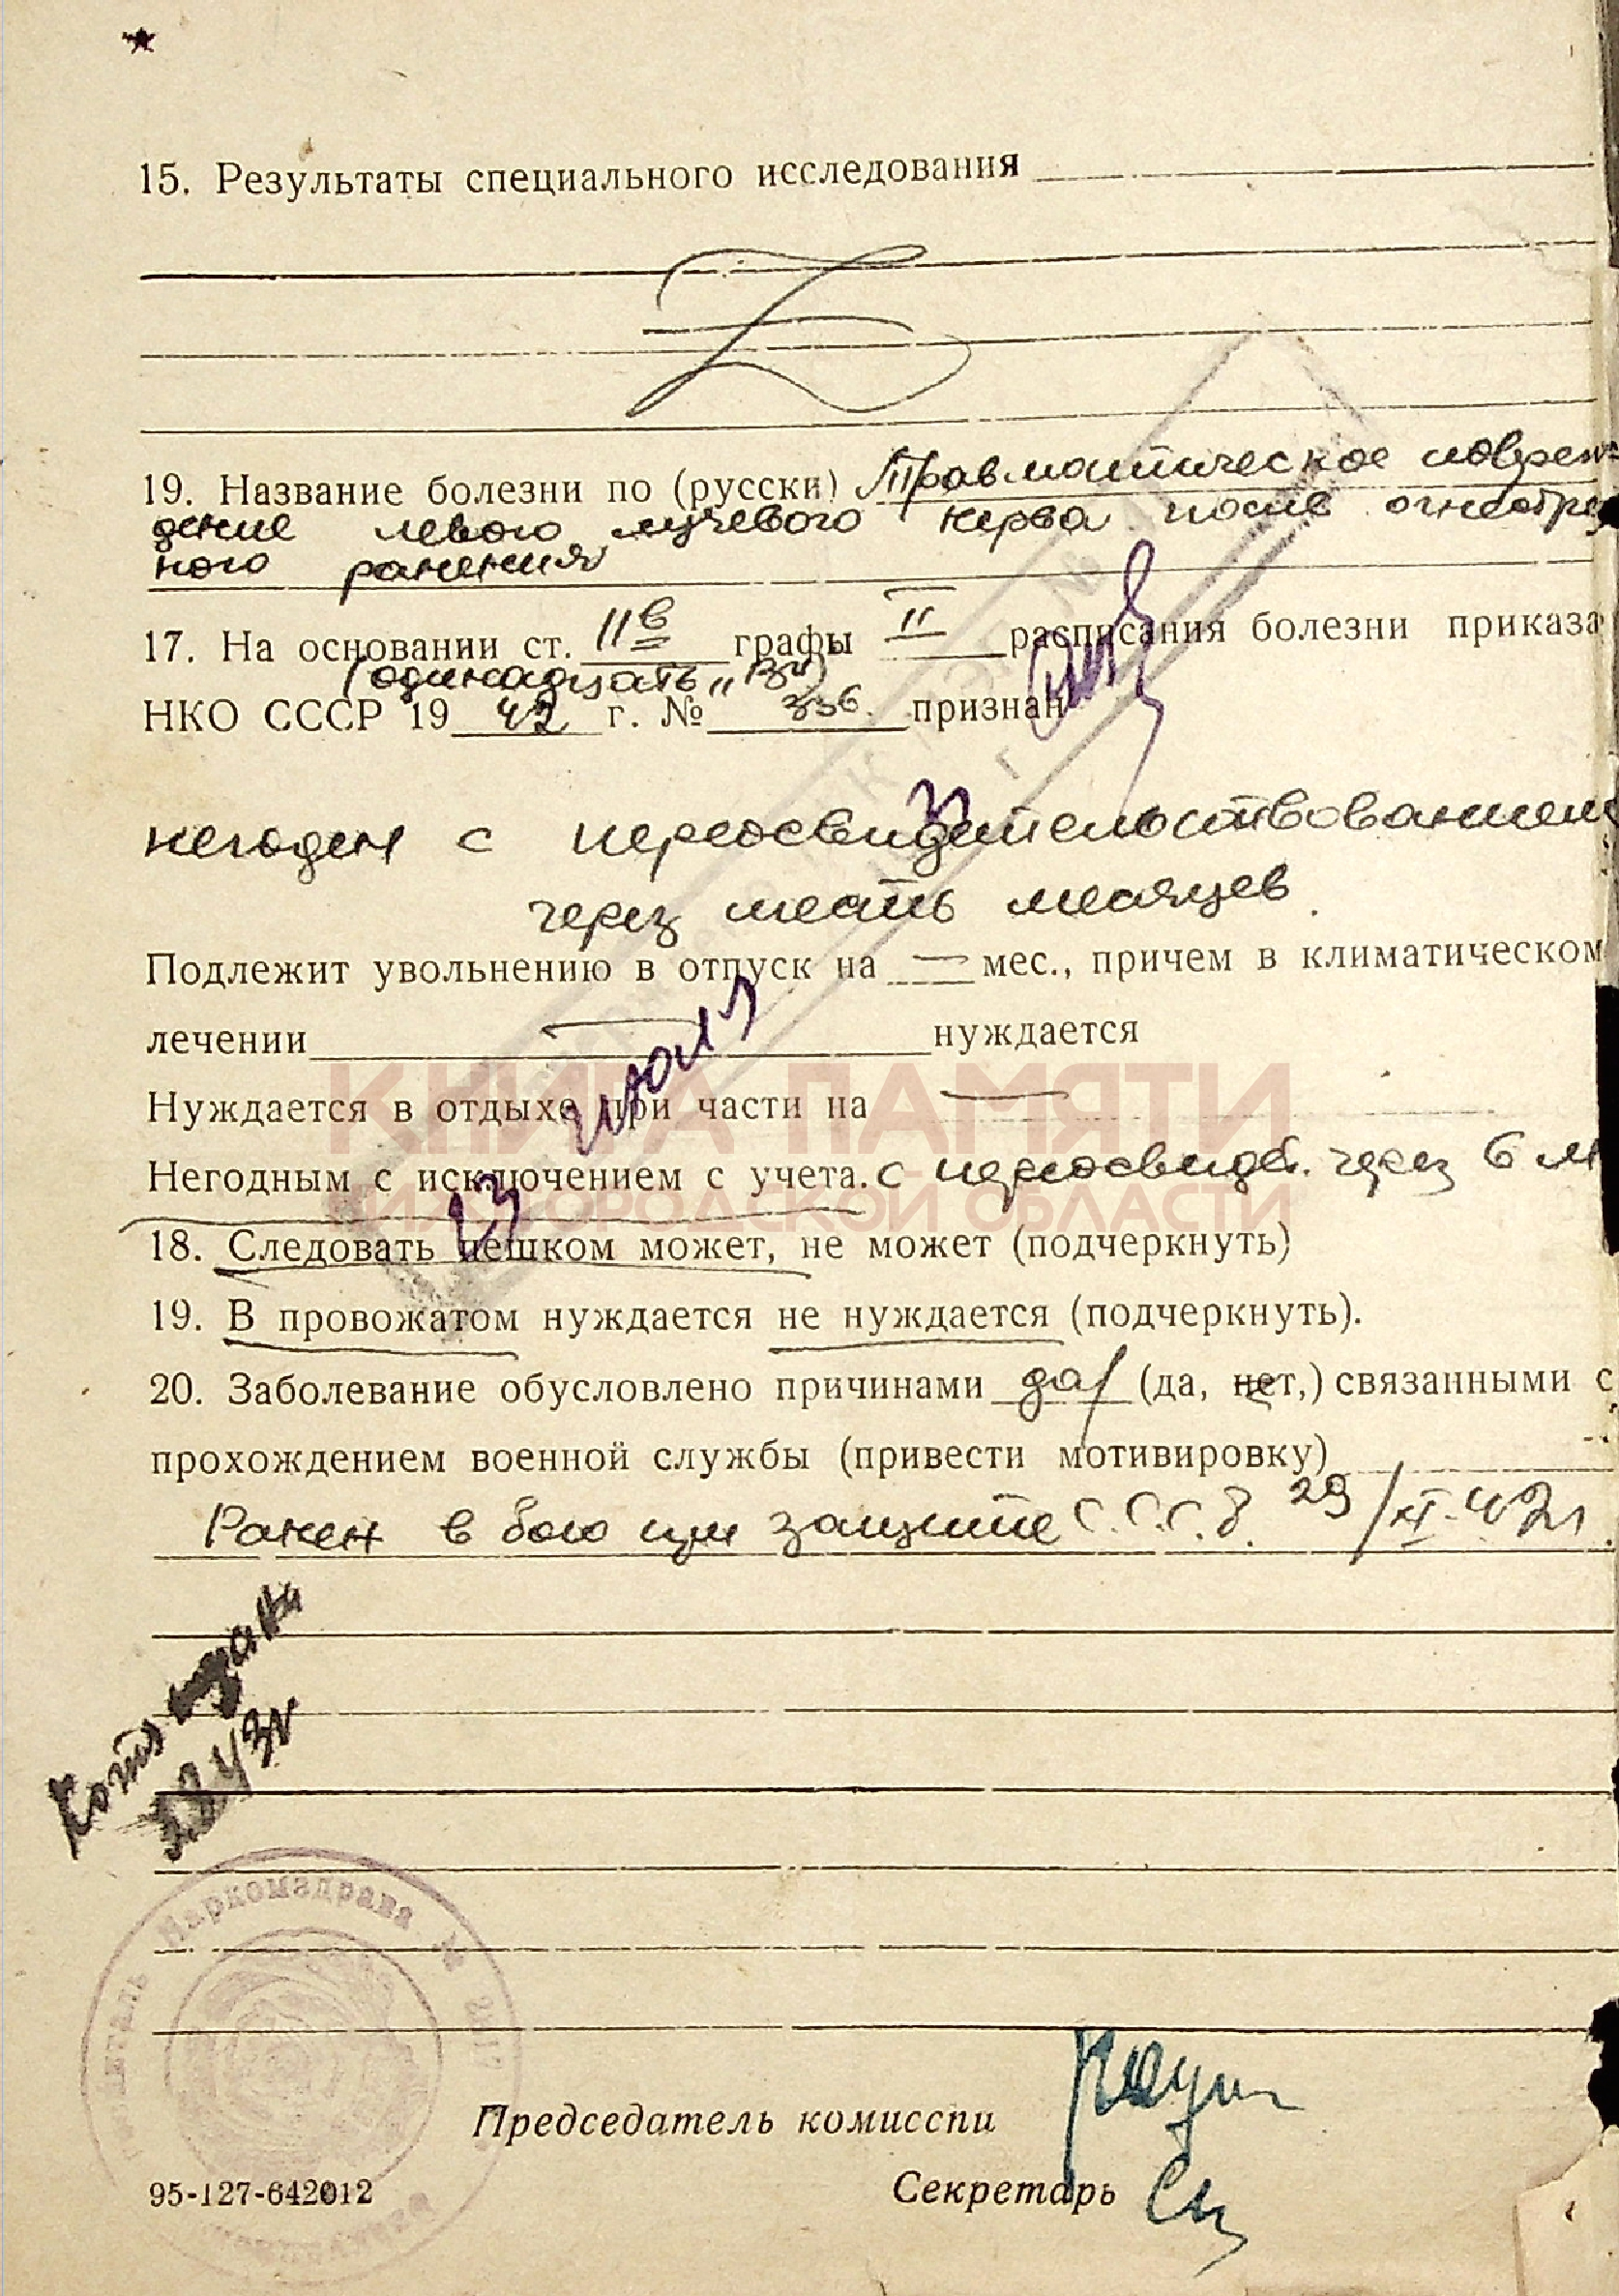 15. Результаты специального исследования
19. Название болезни по (русски) Травматическое повреж-
дение левого лучевого нерва после огнестрель
ного ранения
17. На основании ст. 11 в графы II расписания болезни приказа
(одинадцать „В")
НКО СССР 19 42 г. № 336 признан
негоден с переосвидетельствованием
через шесть месяцев.
Подлежит увольнению в отпуск на — мес., причем в климатическом
лечении — нуждается
Нуждается в отдыхе при части на —
КНИГА ПАМЯТИ
Негодным с исключением с учета. с переосвидет. через 6 м
НИЖЕГОРОДСКОЙ ОБЛАСТИ
23 июля
18. Следовать пешком может, не может (подчеркнуть)
19. В провожатом нуждается не нуждается (подчеркнуть).
20. Заболевание обусловлено причинами да (да, нет,) связанными с
прохождением военной службы (привести мотивировку)
Ранен в бою при защите С.С.С.Р. 29/XI-42г
Наркомздрава №
Председатель комисспи
95-127-642012
Секретарь